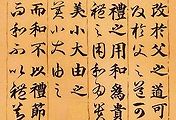 改於父之道可
禮之用和為貴
美小大由之
而和不以禮節